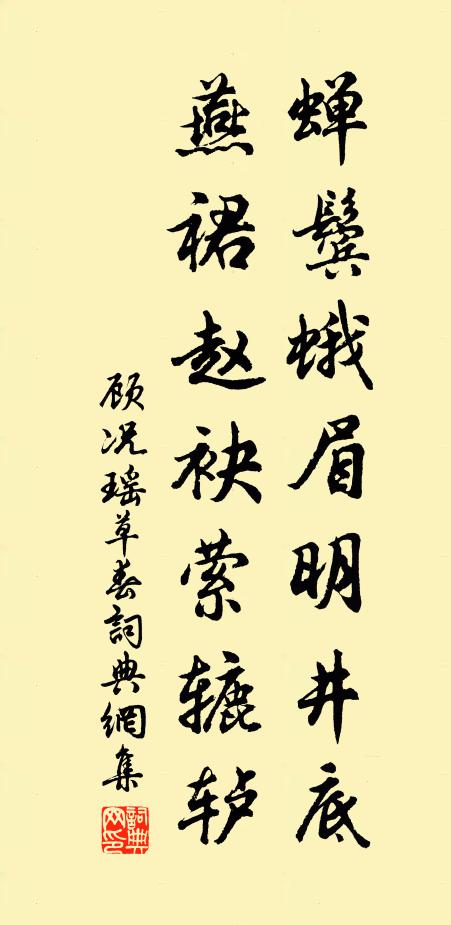 蝉鬓蛾眉明井底
燕裙赵袂萦辘轳
顾况瑶草春詞典網集
詞典
网印